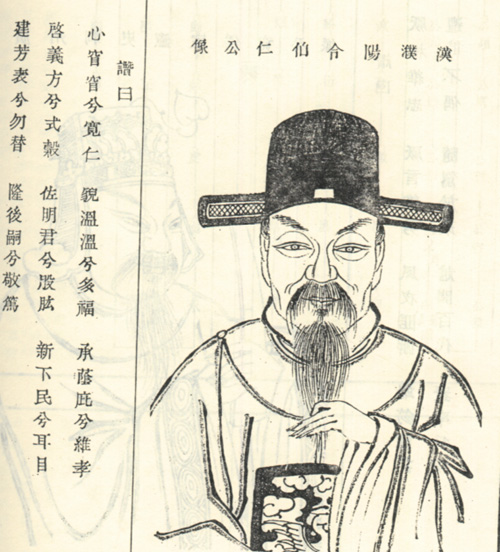 漢濮陽令伯仁公像
譜曰
心窅窅兮寬仁 貌溫溫兮多福 承蔭庇兮維孝
啓義方兮式穀 佐明君兮股肱 新下民兮耳目
建芳表兮勿替 隆後嗣兮敬篤